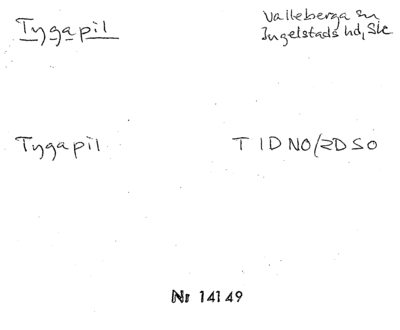 Tygapil
Valleberga sn
Ingelstads hd, Sk
Tygapil
T 1D NO/2D SO
Nr 14149